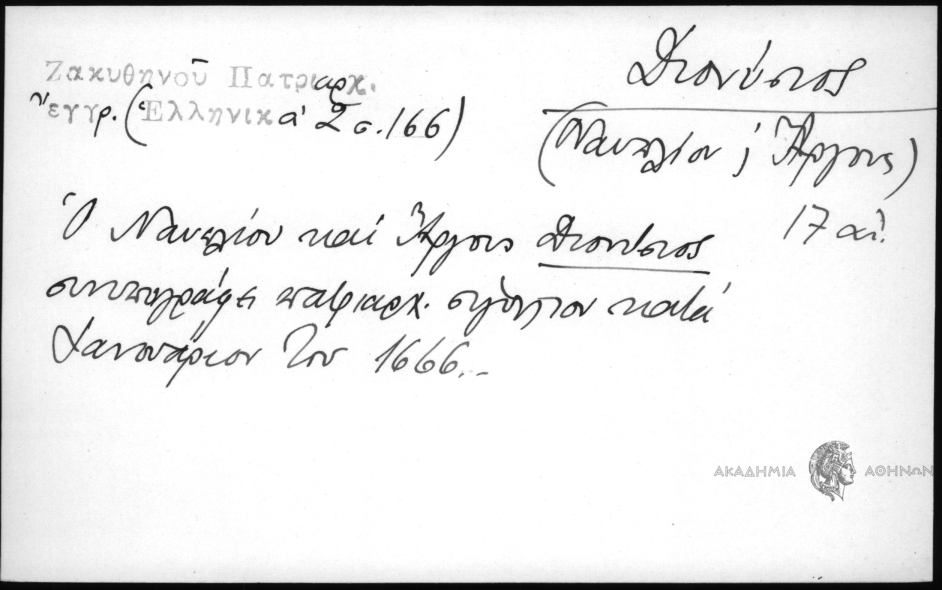 Ζακυθηνοῦ Πατριαρχ.
ἔγγρ. (Ἑλληνικά 2 σ. 166)
Διονύσιος
(Ναυπλίου & Ἄργους)
17 αἰ.
Ὁ Ναυπλίου καί Ἄργους Διονύσιος
συνυπογράφει πατριαρχ. σιγίλλιον κατά
Ἰανουάριον του 1666.
ΑΚΑΔΗΜΙΑ ΑΘΗΝΩΝ